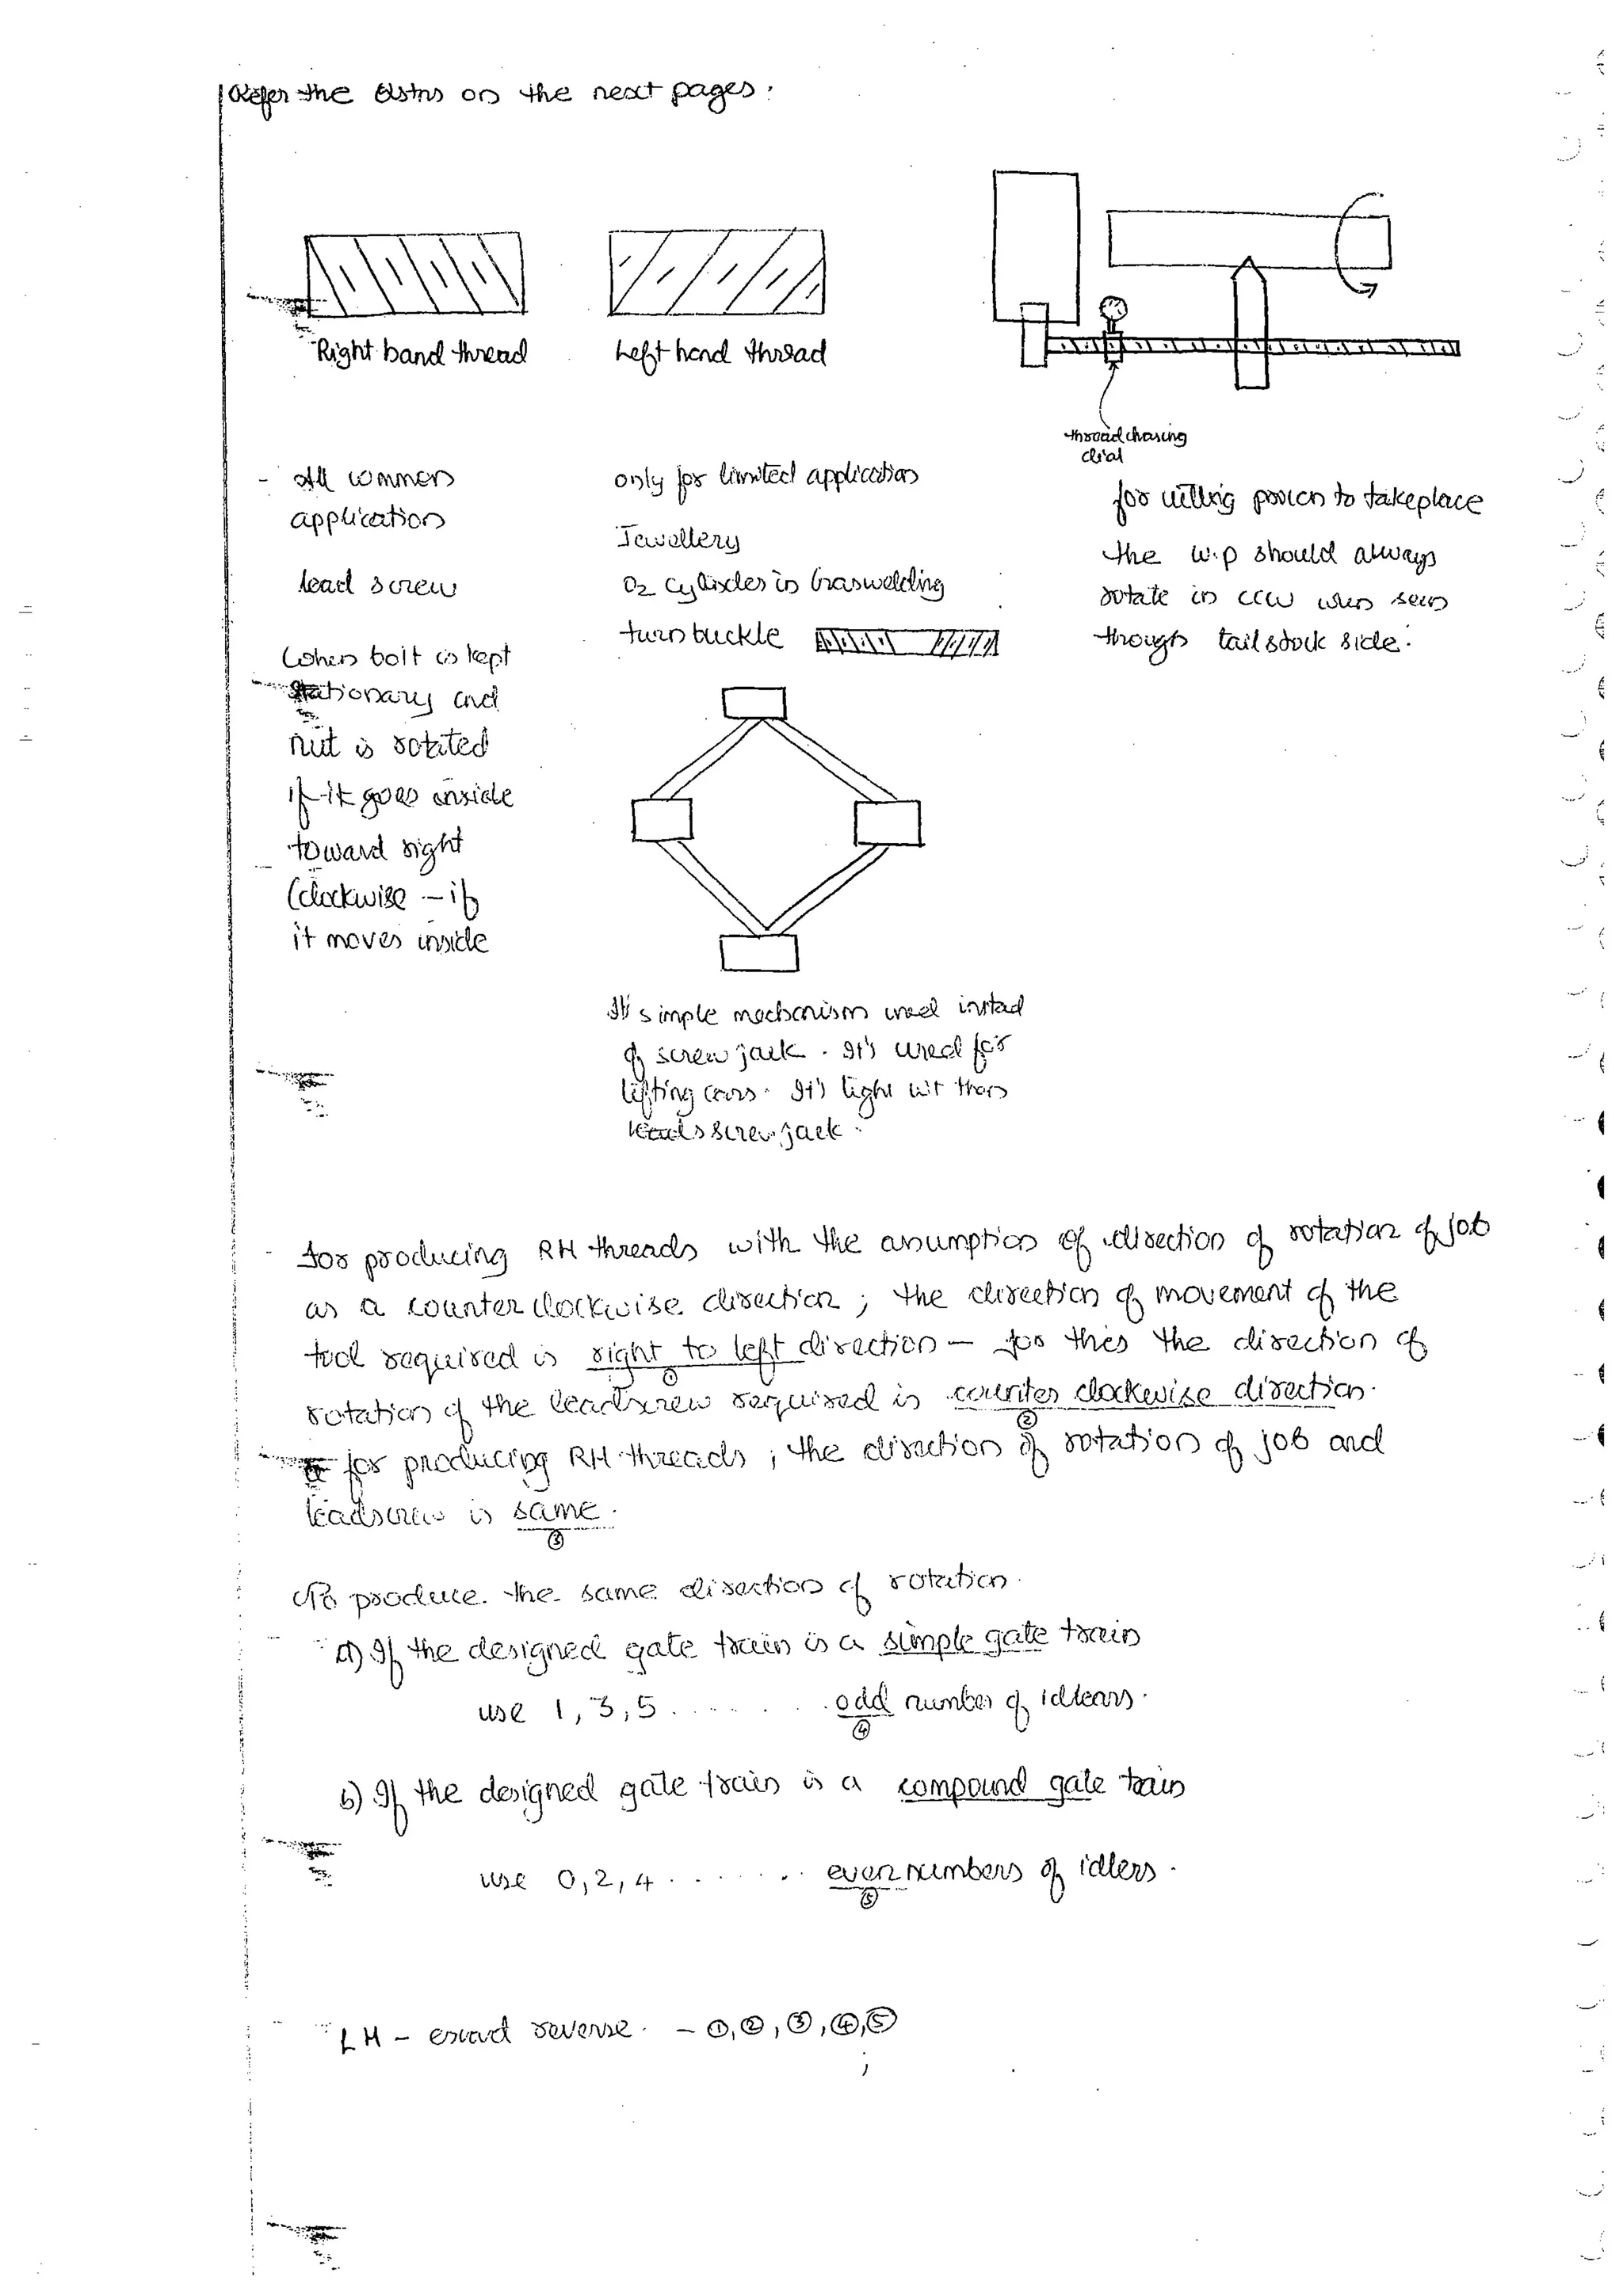 Refer the Qstns on the next pages.
Right hand thread
Left hand thread
thread chasing
dial
- All common
application
lead screw
When bolt is kept
stationary and
nut is rotated
if it goes inside
toward right
(clockwise - if
it moves inside
only for limited application
Jewellery
O2 cylinder in Gas welding
turn buckle
for cutting process to take place
the w.p should always
rotate in ccw when seen
through tail stock side.
It's simple mechanism used instead
of screw jack. It's used for
lifting cars. It's light wt than
leads screw jack.
- for producing RH threads with the assumption of direction of rotation of job
as a counter clockwise direction ; the direction of movement of the
tool required is right to left direction - for this the direction of
①
rotation of the leadscrew required is counter clockwise direction.
②
for producing RH threads ; the direction of rotation of job and
leadscrew is same.
③
To produce the same direction of rotation.
a) If the designed gate train is a simple gate train
use 1, 3, 5 ....... odd number of idlears.
④
b) If the designed gate train is a compound gate train
use 0, 2, 4 ....... even numbers of idlers.
⑤
LH - exact reverse. - ①, ②, ③, ④, ⑤